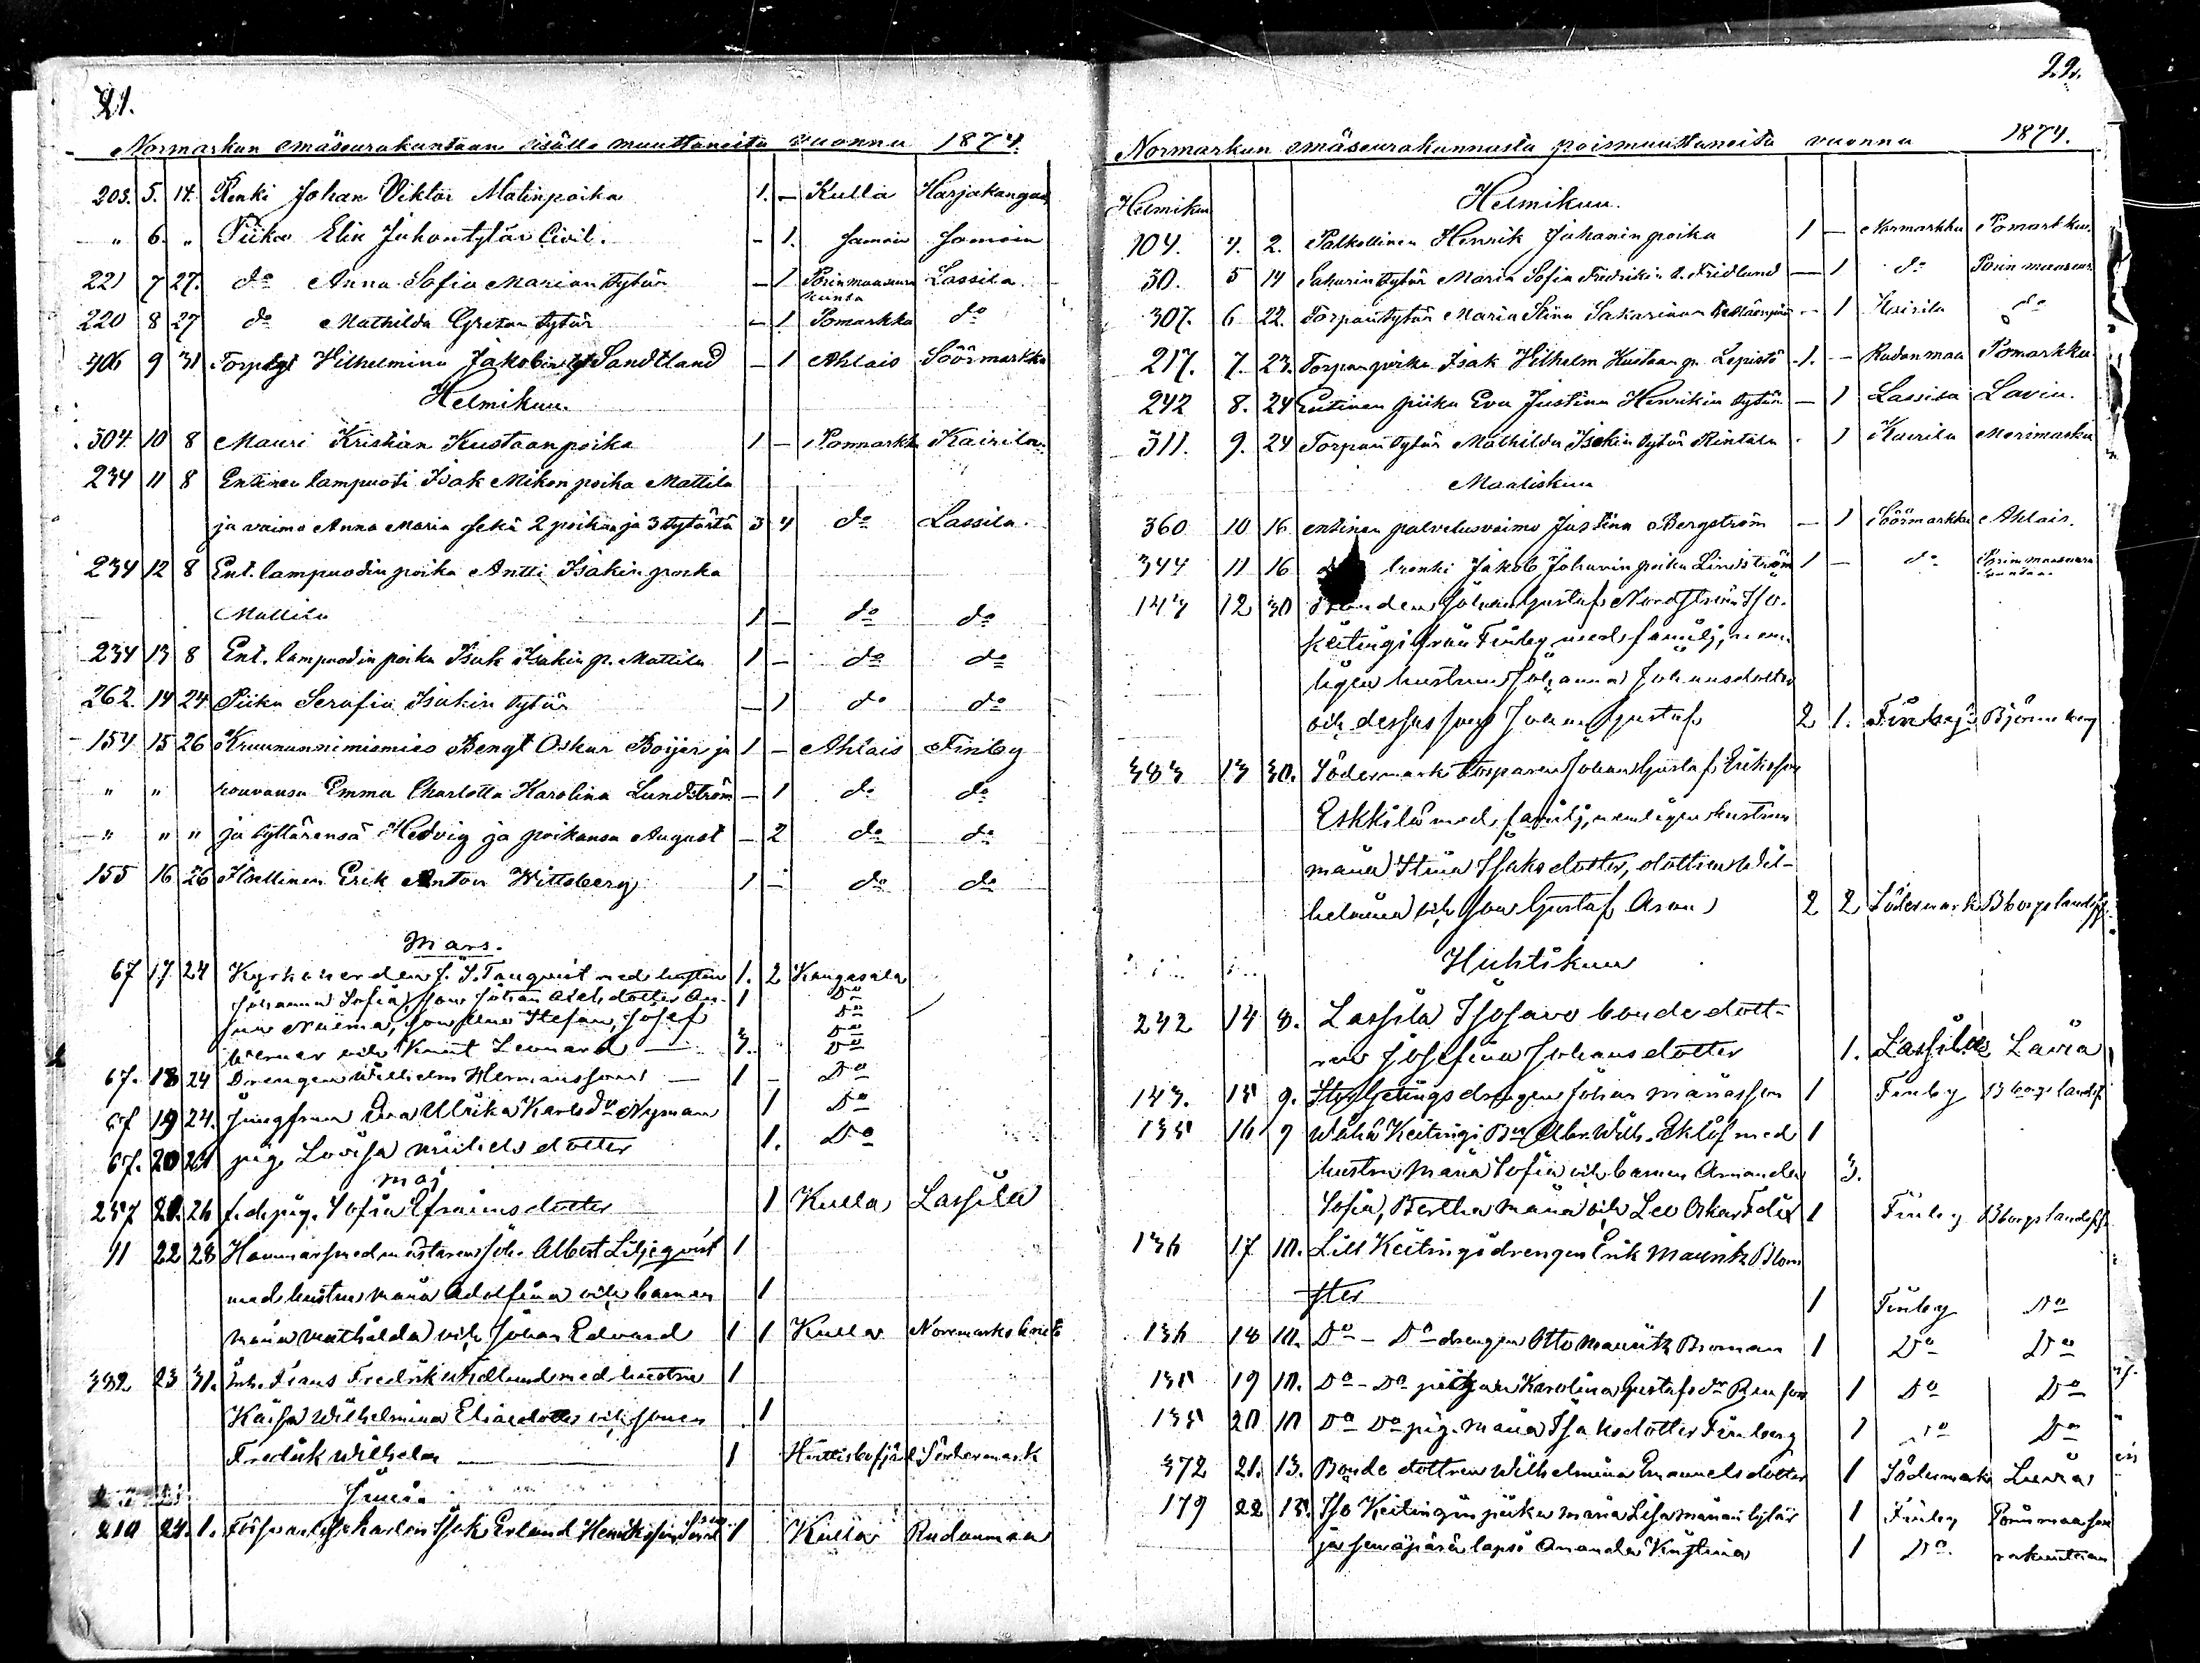 21.
Normarkun emäseurakuntaan sisälle muuttaneita vuonna 1874.
203. 5. 14. Renki Johan Viktor Matinpoika 1. - Kulla Harjakangas
" 6. " Piika Elin Juhontytär Civil. - 1. Samoin Samoin
221 7 27. do Anna Sofia Marian tytär - 1 Porin maaseurakunta Lassila
220 8 27 do Mathilda Gretan tytär - 1 Pomarkku do
406 9 31 Torp.tyt Vilhelmina Jakobin ty. Sandtland - 1 Ahlais Söörmarkku
Helmikuu.
304. 10 8 Mauri Kristian Kustaanpoika 1 - Pomarkku Kairila.
234 11 8 Entinen lampuoti Isak Mikonpoika Mattila
ja vaimo Anna Maria sekä 2 poikaa ja 3 tytärtä 3 4 do Lassila.
234 12 8 Ent. lampuodin poika Antti Isakin poika
Mattila 1 - do do
234 13 8 Ent. lampuodin poika Isak Isakin p. Mattila 1 - do do
262. 14 24 Piika Serafia Isakin tytär - 1 do do
154 15 26 Kruununnimismies Bengt Oskar Boijer ja 1 - Ahlais Finby
" " rouvansa Emma Charlotta Karolina Lundström - 1 do do
" " " ja tyttärensä Hedvig ja poikansa August - 2 do do
155 16 26 Itsellinen Erik Anton Wittsberg 1 - do do
Mars.
67 17 24 Kyrkoherden J. I. Tanquist med hustru 1. 2 Kangasala
Johanna Sofia, son Johan Axel, dotter 1 Do
Naima, son Uno Stefan, Josef Do
Werner och Knut Leonard — 3. Do
67. 18 24 Drengen Wilhelm Hermansson — 1 - Do
67 19 24. Jungfrun Eva Ulrika Karlsdr Nyman 1 Do
67. 20 24 pig. Lovisa Mickelsdotter 1. Do
Maj
257 21. 26 f. d. pig. Sofia Efraimsdotter 1 Kulla Lassila
11 22 28 Hammarsmedmästaren Joh. Albert Liljeqvist 1
med hustru Maria Adolfina och barnen 1
Maria Mathilda och Johan Edvard 1 1 Kulla Norrmarks bruk
382 23 31. Inh. Frans Fredrik Widlund med hustru 1
Kaisa Wilhelmina Eliasdotter och sonen 1
Fredrik Wilhelm — 1 Hvittisbofjärd Södermark
Juni.
210 24. 1. Försvarskarlen Isak Erland Henriksson 1 Kulla Rudanmaa
22.
Normarkun emäseurakunnasta poismuuttaneita vuonna 1874.
Helmikuu Helmikuu.
104. 4. 2. Palkollinen Henrik Juhaninpoika 1 - Normarkku Pomarkku.
30. 5 14 Sakarintytär Maria Sofia Fredrikin t. Fridlund — 1 do Porin maaseur.
307. 6 22. Torpantytär Maria Stina Sakarian t. - 1 Kairila do
217. 7. 23. Torpanpoika Isak Vilhelm Kustaan p. Lepistö 1. - Rudanmaa Pomarkku
242 8. 24 Entinen piika Eva Justina Henrikin tytär — 1 Lassila Lavia.
311. 9. 24 Torpantytär Mathilda Isakin tytär Rintala - 1 Kairila Merimasku
Maaliskuu
360 10 16 entinen palvelusvaimo Justina Bergström — 1 Söörmarkku Ahlais.
344 11 16 renki Jakob Juhaninpoika Lindström 1 - do Porin maaseurakuntaan
143 12 30 Bonden Johan Gustaf Nordström Iso-
keitingi från Finby med familj, nem-
ligen hustrun Johanna Johansdotter
och dessas son Johan Gustaf 2 1. Finby Björneborg
383 13 30. Södermark torparen Johan Gustaf Eriksson
Eskkilä med familj, nemligen hustrun
Maria Stina Isaksdotter, dottren Wil-
helmina och son Gustaf Aron 2 2 Södermark Bborgs landsf.
Huhtikuu
242 14 8. Lassila Isosavo bondedott-
ren Josefina Johansdotter 1. Lassila Lavia
143. 15 9. Stor Getingsdrengen Johan Mariasson 1 Finby Bborgs landsf.
135 16 9 Wähä Keitingi Abr. Wilh. Eklöf med 1
hustru Maria Sofia och barnen Amanda 3.
Sofia, Bertha Maria och Leo Oskar Felix 1 Finby Bborgs landsf.
136 17 10. Lill Keitingsdrengen Erik Mauritz Blom
ster 1 Finby Do
136 18 10. Do - Do drengen Otto Mauritz Broman 1 Do Do
135 19 10. Do - Do pigan Karolina Gustafsdr 1 Do Do
135 20 10 Do Do pig. Maria Isaksdotter Finberg 1 Do Do
372 21. 13. Bonde dottren Wilhelmina Emanuelsdotter 1 Södermark Lavia
179 22 15. Iso Keitingin piika Maria Lisa Marian tytär 1 Finby Porin maaseu
ja sen äpärälapsi Amanda Kristina 1 Do. rakuntaan